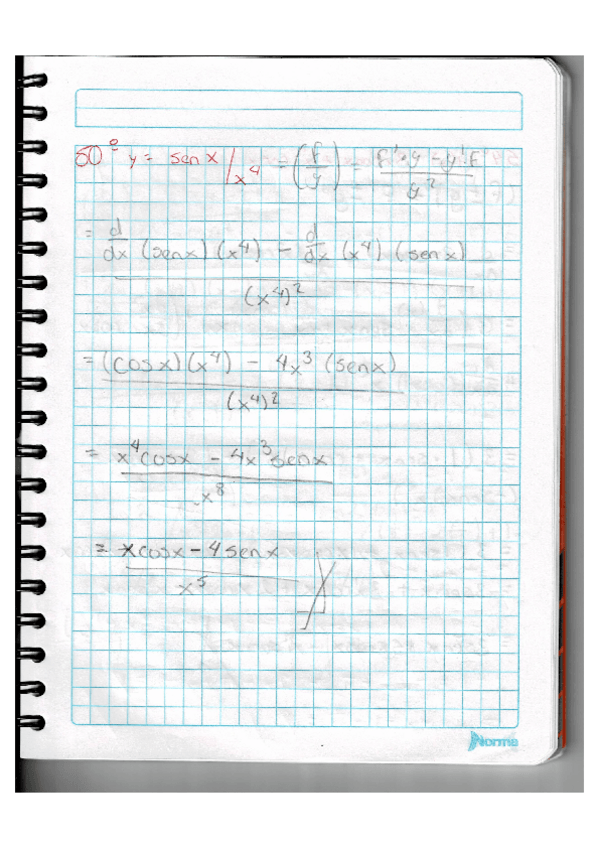 50º y = sen x / x⁴ = (f/y) = f'·y - y'f / y²
= d/dx (sen x) (x⁴) - d/dx (x⁴) (sen x) / (x⁴)²
= (cos x) (x⁴) - 4x³ (sen x) / (x⁴)²
= x⁴ cos x - 4x³ sen x / x⁸
= x cos x - 4 sen x / x⁵
Norma